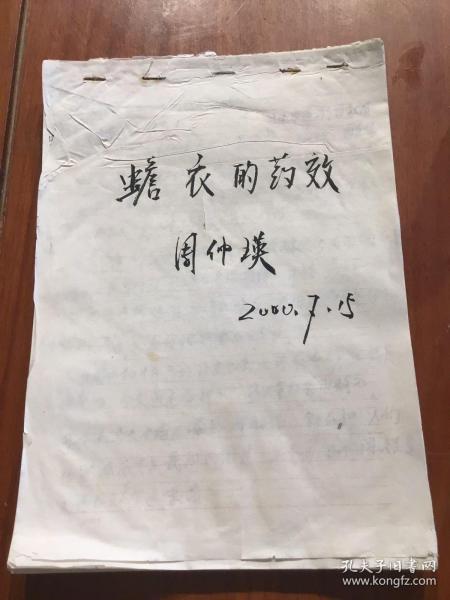 蟾衣的药效
周仲瑛
2000.7.15
孔夫子旧书网
www.kongfz.com